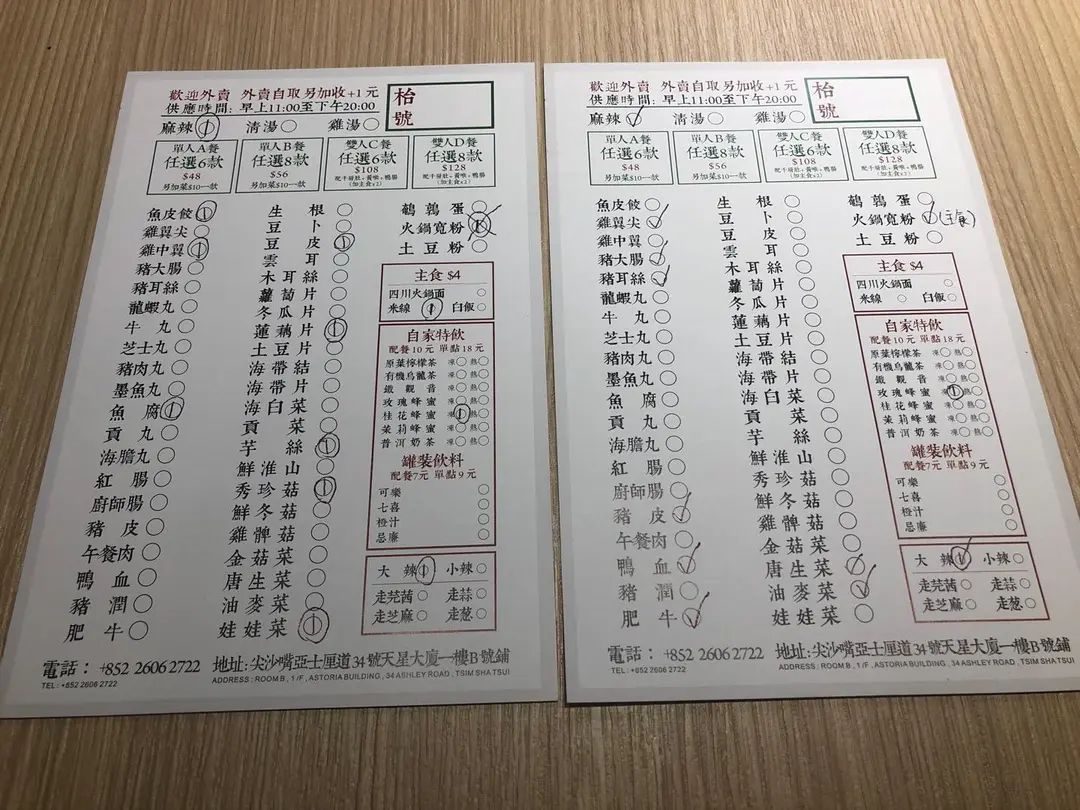 歡迎外賣 外賣自取另加收+1元
供應時間: 早上11:00至下午20:00
枱號
麻辣 1 清湯 雞湯
單人A餐
任選6款
$48
另加菜$10一款
單人B餐
任選8款
$56
另加菜$10一款
雙人C餐
任選6款
$108
(加主食x2)
雙人D餐
任選8款
$128
(加主食x2)
魚皮餃 1
雞翼尖
雞中翼 1
豬大腸
豬耳絲
龍蝦丸
牛丸
芝士丸
豬肉丸
墨魚丸
魚腐 1
貢丸
海膽丸
紅腸
廚師腸
豬皮
午餐肉
鴨血
豬潤
肥牛
生根
豆卜
豆皮 1
雲耳
木耳絲
蘿蔔片
冬瓜片
蓮藕片 1
土豆片
海帶結
海帶片
海白菜
貢菜
芋絲 1
鮮淮山
秀珍菇 1
鮮冬菇
雞髀菇
金菇菜
唐生菜
油麥菜
娃娃菜 1
鵪鶉蛋
火鍋寬粉
土豆粉
主食 $4
四川火鍋面
米線 1 白飯
自家特飲
配餐10元 單點18元
原葉檸檬茶 凍 熱
有機烏龍茶 凍 熱
鐵觀音 凍 熱
玫瑰蜂蜜 凍 熱
桂花蜂蜜 凍 1 熱
茉莉蜂蜜 凍 熱
普洱奶茶 凍 熱
罐裝飲料
配餐7元 單點9元
可樂
七喜
橙汁
忌廉
大辣 1 小辣
走芫茜 走蒜
走芝麻 走葱
電話： +852 2606 2722 地址: 尖沙嘴亞士厘道34號天星大廈一樓B號鋪
TEL: +852 2606 2722 ADDRESS: ROOM B, 1/F, ASTORIA BUILDING, 34 ASHLEY ROAD, TSIM SHA TSUI
歡迎外賣 外賣自取另加收+1元
供應時間: 早上11:00至下午20:00
枱號
麻辣 ✓ 清湯 雞湯
單人A餐
任選6款
$48
另加菜$10一款
單人B餐
任選8款
$56
另加菜$10一款
雙人C餐
任選6款
$108
(加主食x2)
雙人D餐
任選8款
$128
(加主食x2)
魚皮餃
雞翼尖 ✓
雞中翼
豬大腸 ✓
豬耳絲 ✓
龍蝦丸
牛丸
芝士丸
豬肉丸
墨魚丸
魚腐
貢丸
海膽丸
紅腸
廚師腸
豬皮 ✓
午餐肉
鴨血 ✓
豬潤
肥牛 ✓
生根
豆卜
豆皮
雲耳
木耳絲
蘿蔔片
冬瓜片
蓮藕片
土豆片
海帶結
海帶片
海白菜
貢菜
芋絲
鮮淮山
秀珍菇
鮮冬菇
雞髀菇
金菇菜
唐生菜
油麥菜 ✓
娃娃菜
鵪鶉蛋
火鍋寬粉 ✓ (主食)
土豆粉
主食 $4
四川火鍋面
米線 白飯
自家特飲
配餐10元 單點18元
原葉檸檬茶 凍 熱
有機烏龍茶 凍 熱
鐵觀音 凍 熱
玫瑰蜂蜜 凍 1 熱
桂花蜂蜜 凍 熱
茉莉蜂蜜 凍 熱
普洱奶茶 凍 熱
罐裝飲料
配餐7元 單點9元
可樂
七喜
橙汁
忌廉
大辣 ✓ 小辣
走芫茜 走蒜
走芝麻 走葱
電話： +852 2606 2722 地址: 尖沙嘴亞士厘道34號天星大廈一樓B號鋪
TEL: +852 2606 2722 ADDRESS: ROOM B, 1/F, ASTORIA BUILDING, 34 ASHLEY ROAD, TSIM SHA TSUI